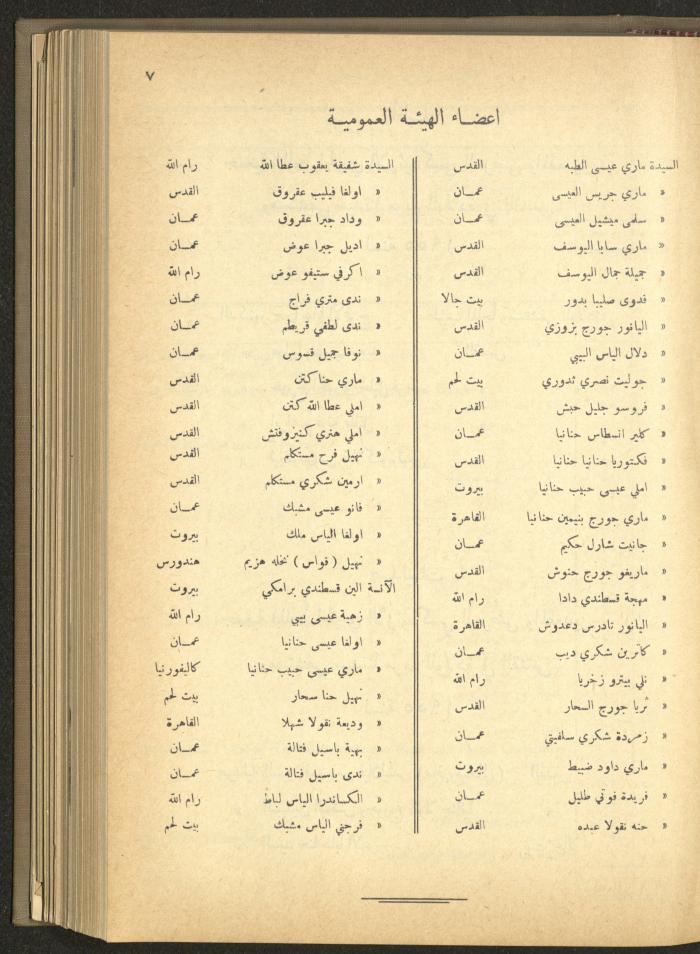 ٧
اعضاء الهيئة العمومية
السيدة ماري عيسى الطبه القدس
« ماري جريس العيسى عمان
« سلمى ميشيل العيسى عمان
« ماري سابا اليوسف القدس
« جميلة جمال اليوسف القدس
« فدوى صليبا بدور بيت جالا
« اليانور جورج بزوزي القدس
« دلال الياس البيبي عمان
« جوليت نصري تدوري بيت لحم
« فروسو جليل حبش القدس
« كلير انسطاس حنانيا عمان
« فكتوريا حنانيا حنانيا القدس
« املي عيسى حبيب حنانيا بيروت
« ماري جورج بنيمين حنانيا القاهرة
« جانيت شارل حكيم عمان
« ماريغو جورج حنوش القدس
« مهجة قسطندي دادا رام الله
« اليانور تادرس دعدوش القاهرة
« كاترين شكري ديب عمان
« نلي بيترو زخريا رام الله
« ثريا جورج السحار القدس
« زمردة شكري سلفيتي عمان
« ماري داود ضبيط بيروت
« فريدة فوتي طليل عمان
« حنه نقولا عبده القدس
السيدة شفيقة يعقوب عطا الله رام الله
« اولغا فيليب عقروق القدس
« وداد جبرا عقروق عمان
« اديل جبرا عوض عمان
« اكرفي ستيفو عوض رام الله
« ندى متري فراج عمان
« ندى لطفي قريطم عمان
« نوفا جميل قسوس عمان
« ماري حنا كتن القدس
« املي عطا الله كتن القدس
« املي هنري كنيزوفتش القدس
« نهيل فرح مستكلم القدس
« ارمين شكري مستكلم القدس
« فانو عيسى مشبك عمان
« اولغا الياس ملك بيروت
« نهيل ( فواس ) نخله هزيم هندورس
الآنسة الين قسطندي برامكي بيروت
« زهية عيسى بيبي رام الله
« اولغا عيسى حنانيا عمان
« ماري عيسى حبيب حنانيا كاليفورنيا
« نهيل حنا سحار بيت لحم
« وديعة نقولا شهلا القاهرة
« بهية باسيل فتالة عمان
« ندى باسيل فتالة عمان
« الكساندرا الياس لباط رام الله
« فرجني الياس مشبك بيت لحم